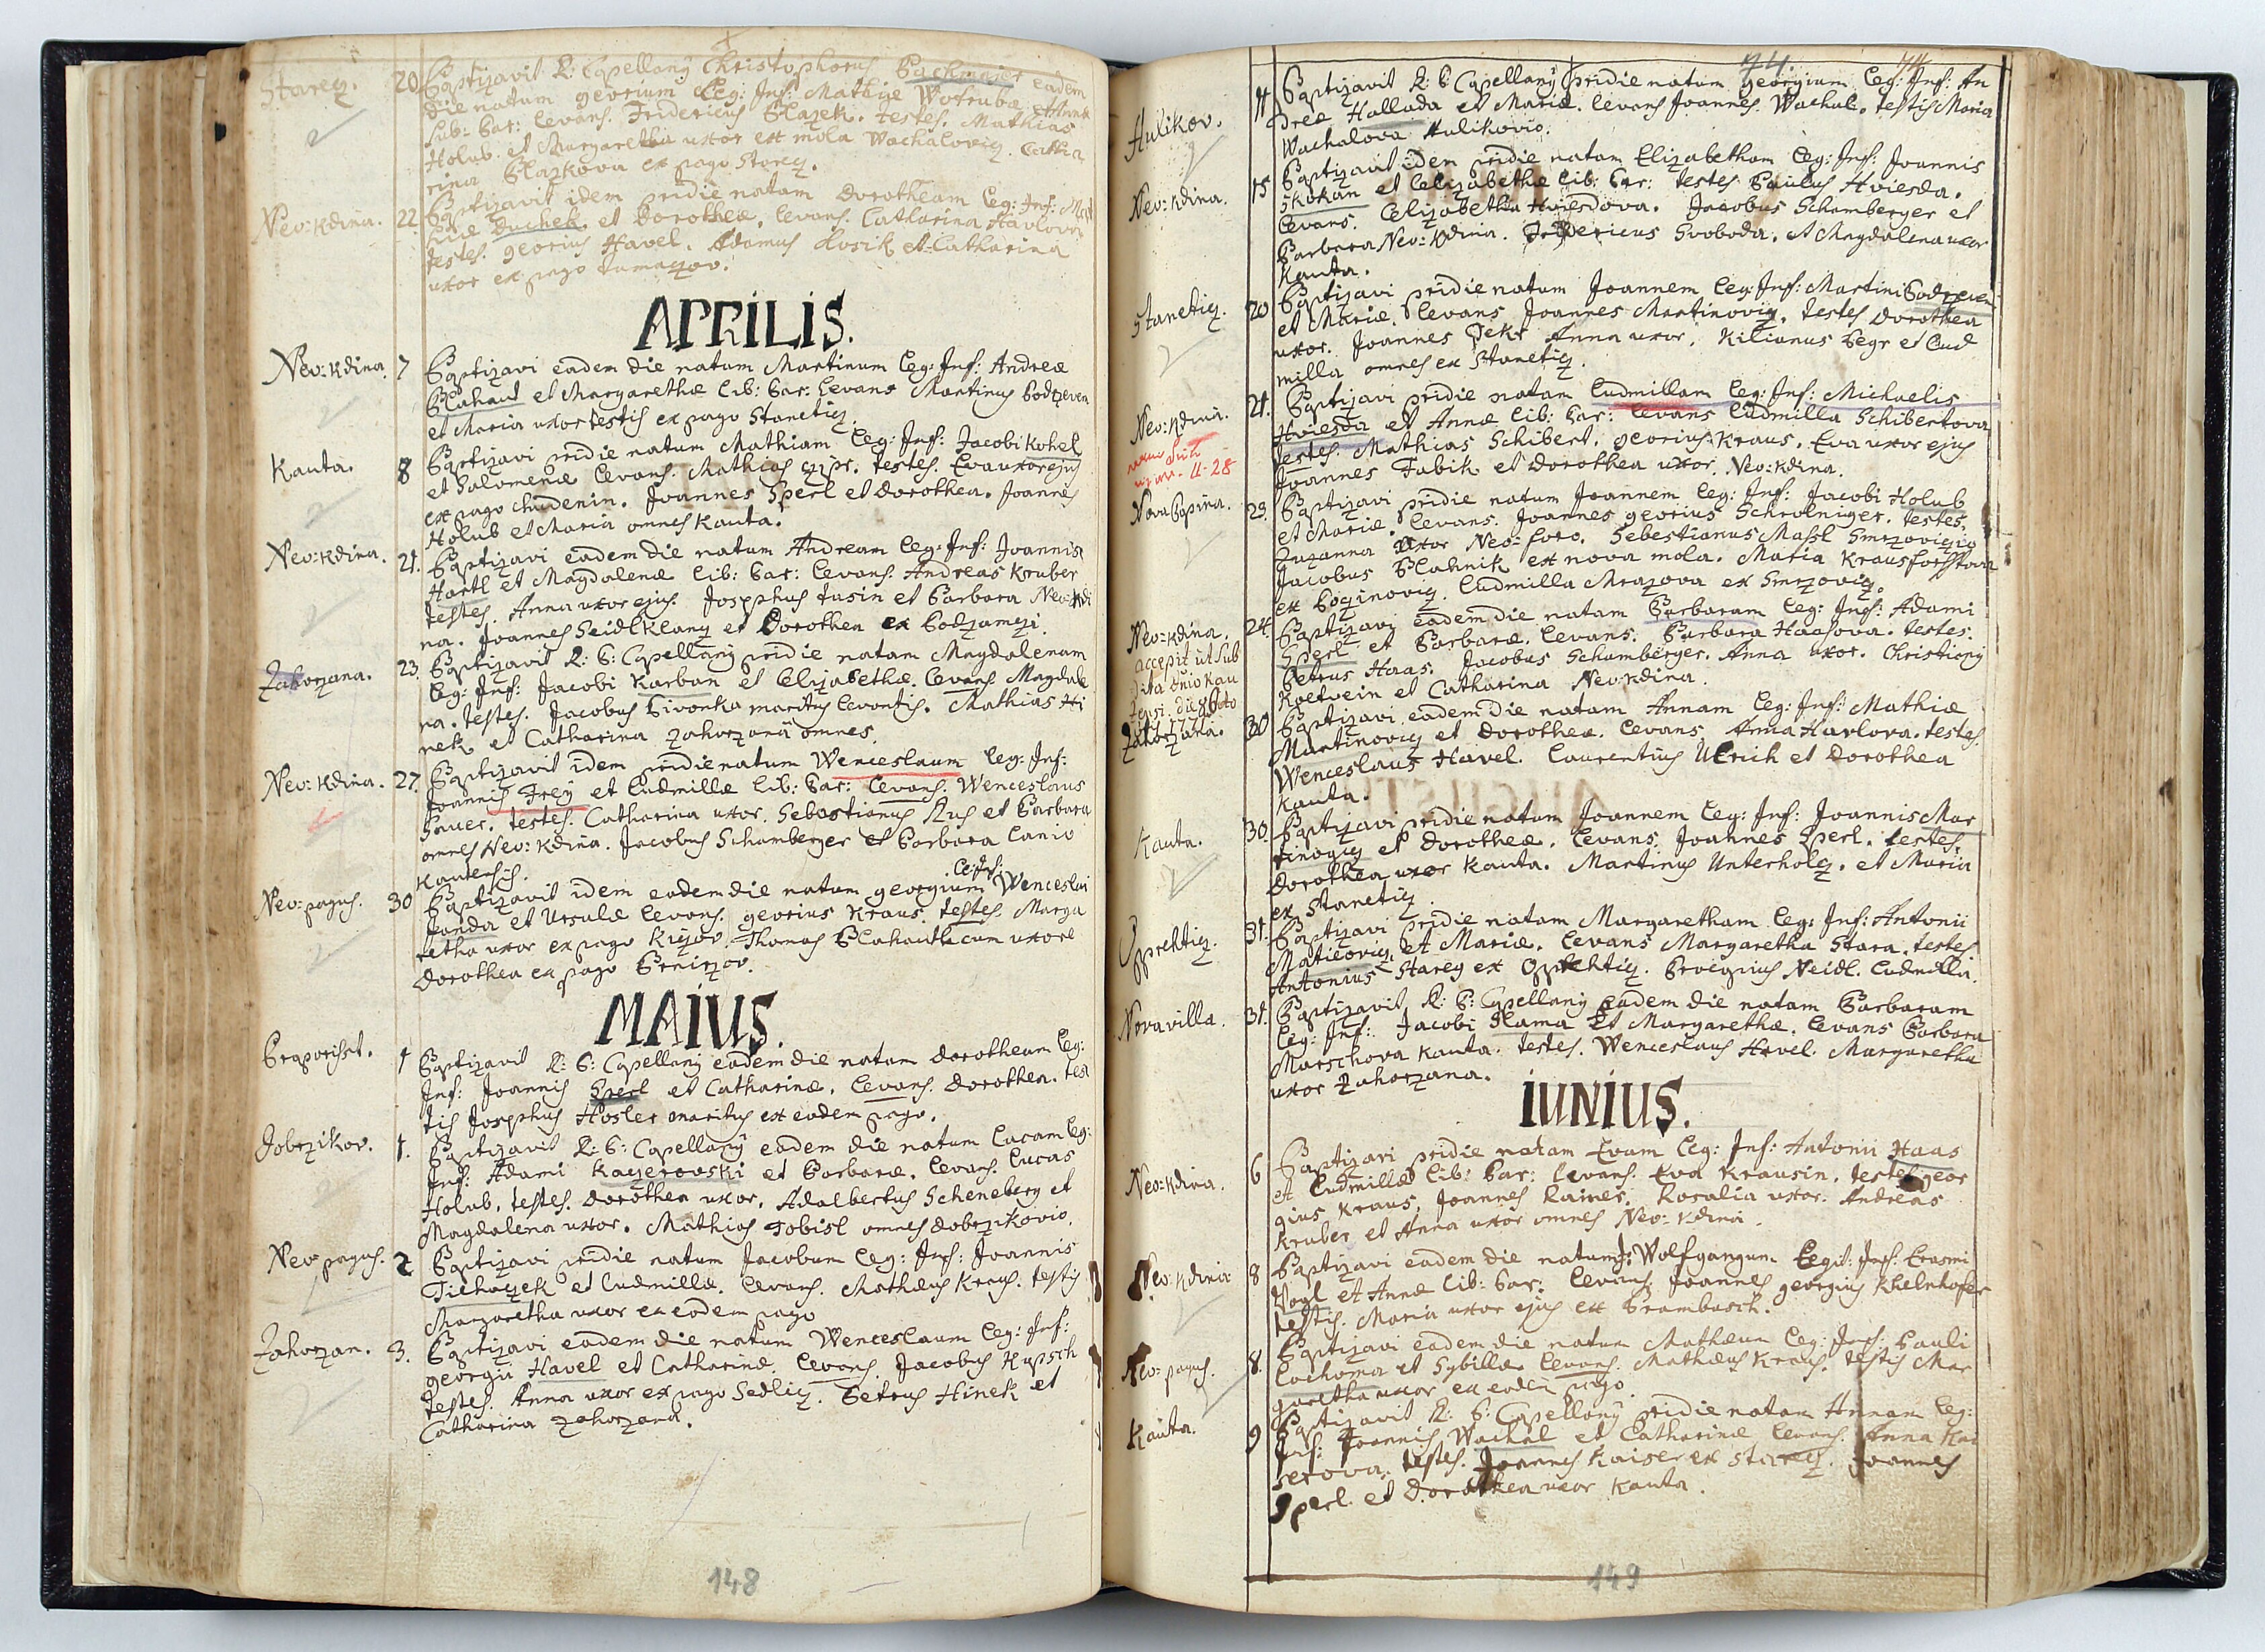 Starecz. 20 Baptizavit R: Capellanus Christophorus Bachmajer eadem
die natum georium Leg: Inf: Mathiæ Wotruba et Annæ
sub: Par: Levans. Fridericus Blazek. testes. Mathias
Holub. et Margaretha uxor ex mola Wachalovicz. Catha
rina Blazkova ex pago Starecz.
Nev: Kdina. 22 Baptizavit idem pridie natam Dorotheam Leg: Inf: Mart
Duchek et Dorotheæ. Levans. Catharina Havlova
testes. georius Havel. Adamus Kosik et Catharina
uxor ex pago
APRILIS.
Nev: Kdina. 7 Baptizavi eadem die natum Martinum Leg: Inf: Andreæ
Blahaut et Margarethæ lib: Par: Levans Martinus Bodzeven
et Maria uxor testis ex pago Staneticz.
Kauta. 8 Baptizavi pridie natum Mathiam Leg: Inf: Jacobi Kohel
et Salomenæ Levans. Mathias testes. Eva uxor ejus
ex pago Chudenin. Joannes Sperl et Dorothea. Joannes
Holub et Maria omnes Kauta.
Nev: Kdina. 21. Baptizavi eadem die natum Andream Leg: Inf: Joannis
Hartl et Magdalenæ lib: Par: Levans. Andreas Kruber
testes. Anna uxor ejus. Josephus Tusin et Barbara Nev: Kdi
na. Joannes Seidl et Dorothea ex
Zahorzana. 23. Baptizavit R: P: Capellanus pridie natam Magdalenam
Leg: Inf: Jacobi Karban et Elizabethæ. Levans Magdale
na. testes. Jacobus Bivonka maritus Levantis. Mathias Hi
nek et Catharina Zahorzana omnes.
Nev: Kdina. 27. Baptizavit idem pridie natum Wenceslaum Leg: Inf:
Joannis Frey et Ludmillæ lib: Par: Levans. Wenceslaus
Sauer. testes. Catharina uxor. Sebastianus Rus et Barbara
omnes Nev: Kdina. Jacobus Schamberger et Barbara Lanio
Kautensis.
Nev: pagus. 30 Baptizavit idem eadem die natum georgium Leg: Inf: Wenceslai
Janda et Ursulæ Levans. georius Kraus. testes. Marga
retha uxor ex pago Kiczov. Thomas Blahauth cum uxore
Dorothea ex pago Brnirzov.
MAIUS.
Praporisst. 1 Baptizavit R: P: Capellanus eadem die natam Dorotheam Leg:
Inf: Joannis Sperl et Catharinæ. Levans. Dorothea. tes
tis Josephus Hosler maritus ex eodem pago.
Dobrzikov. 1. Baptizavit R: P: Capellanus eadem die natum Lucam Leg:
Inf: Adami Kayerovski et Barbaræ. Levans. Lucas
Holub. testes. Dorothea uxor. Adalbertus Scheneberg et
Magdalena uxor. Mathias Tobisl omnes Dobrzikovio.
Nev: pagus. 2 Baptizavi pridie natum Jacobum Leg: Inf: Joannis
Tichaczek et Ludmillæ. Levans. Mathæus Kraus. testis
Margaretha uxor ex eodem pago
Zahorzan. 3. Baptizavi eadem die natum Wenceslaum Leg: Inf:
georgii Havel et Catharinæ. Levans. Jacobus Kupsch
testes. Anna uxor ex pago Sedlicz. Petrus Hinek et
Catharina Zahorzana.
148
74
Hulikov. 11 Baptizavit R: P: Capellanus pridie natum georgium Leg: Inf: An
dreæ Hallada et Mariæ. Levans Joannes Wachal. testis Maria
Wachalova Hulikovio.
Nev: Kdina. 15 Baptizavit idem pridie natam Elizabetham Leg: Inf: Joannis
Skokan et Elizabethæ lib: Par: testes Paulus Hviesda.
Levans. Elizabetha Hviesdova. Jacobus Schamberger et
Barbara Nev: Kdina. Fridericus Svoboda. et Magdalena uxor
Kauta.
Staneticz. 20 Baptizavi pridie natum Joannem Leg: Inf: Martini Bodzeven
et Mariæ. Levans Joannes Martinovicz. testes Dorothea
uxor. Joannes Pekr Anna uxor. Kilianus Begr et Lud
milla omnes ex Stanetiz.
Nev: Kdina. 21. Baptizavi pridie natam Ludmillam Leg: Inf: Michaelis
Hviesda et Annæ lib: Par: Levans Ludmilla Schibertova
testes. Mathias Schibert. georius Kraus. Eva uxor ejus
Joannes Fabik et Dorothea uxor. Nev: Kdina.
Nova 23. Baptizavi pridie natum Joannem Leg: Inf: Jacobi Holub
et Mariæ. Levans. Joannes georius Schrolniger. testes.
Zuzanna uxor Neo: foro. Sebestianus Massl Smrzoviczio
Jacobus Blahnik ex nova mola. Maria
ex Loczinovicz. Ludmilla Mrazova ex Smrzovicz.
Nev: Kdina. 24 Baptizavi eadem die natam Barbaram Leg: Inf: Adami
Sperl et Barbaræ. Levans. Barbara Haasova. testes.
Petrus Haas. Jacobus Schamberger. Anna uxor. Christianus
Koetvein et Catharina Nev: Kdina.
accepit ut sub
dita Dnio Kau
tensi.
Zahorzana. 30 Baptizavi eadem die natam Annam Leg: Inf: Mathiæ
Martinovicz et Dorotheæ. Levans. Anna Havlova. testes.
Wenceslaus Havel. Laurentius Ulrich et Dorothea
Kauta.
Kauta. 30. Baptizavi pridie natum Joannem Leg: Inf: Joannis Mar
tinovicz et Dorotheæ. Levans. Joannes Sperl. testes.
Dorothea uxor Kauta. Martinus Unterholcz. et Maria
ex Stanetiz.
Opprehticz. 31. Baptizavi pridie natam Margaretham Leg: Inf: Antonii
Matieovicz. et Mariæ. Levans Margaretha Stara. testes
Antonius Starey ex Oprehticz. Procopius Neidl. Ludmilla.
Nova villa. 31. Baptizavit R: P: Capellanus eadem die natam Barbaram
Leg: Inf: Jacobi Slama et Margarethæ. Levans Barbara
Marschova Kauta. testes. Wenceslaus Havel. Margaretha
uxor Zahorzana.
IUNIUS.
Nev: Kdina. 6 Baptizavi pridie natam Evam Leg: Inf: Antonii Haas
et Ludmillæ lib: Par: Levans. Eva Krausin. testes geor
gius Kraus. Joannes Raines. Rosalia uxor. Andreas
Kruber et Anna uxor omnes Nev: Kdina.
Nev: Kdinia 8 Baptizavi eadem die natum Wolfgangum Legit: Inf: Erasmi
Vogl et Annæ lib: Par: Levans. Joannes georgius Khelnhofer
testis. Maria uxor ejus ex Brambusch.
Nev: pagus. 8. Baptizavi eadem die natum Mathæum Leg: Inf: Pauli
Cochoma et Sybillæ Levans. Mathæus Kraus. testis Mar
garetha uxor ex eodem pago.
Kauta. 9 Baptizavit R: P: Capellanus pridie natam Annam Leg:
Inf: Joannis Wachal et Catharinæ Levans. Anna Kai
serova. testes. Joannes Kaiser ex Starecz. Joannes
Sperl et Dorothea uxor Kauta.
149